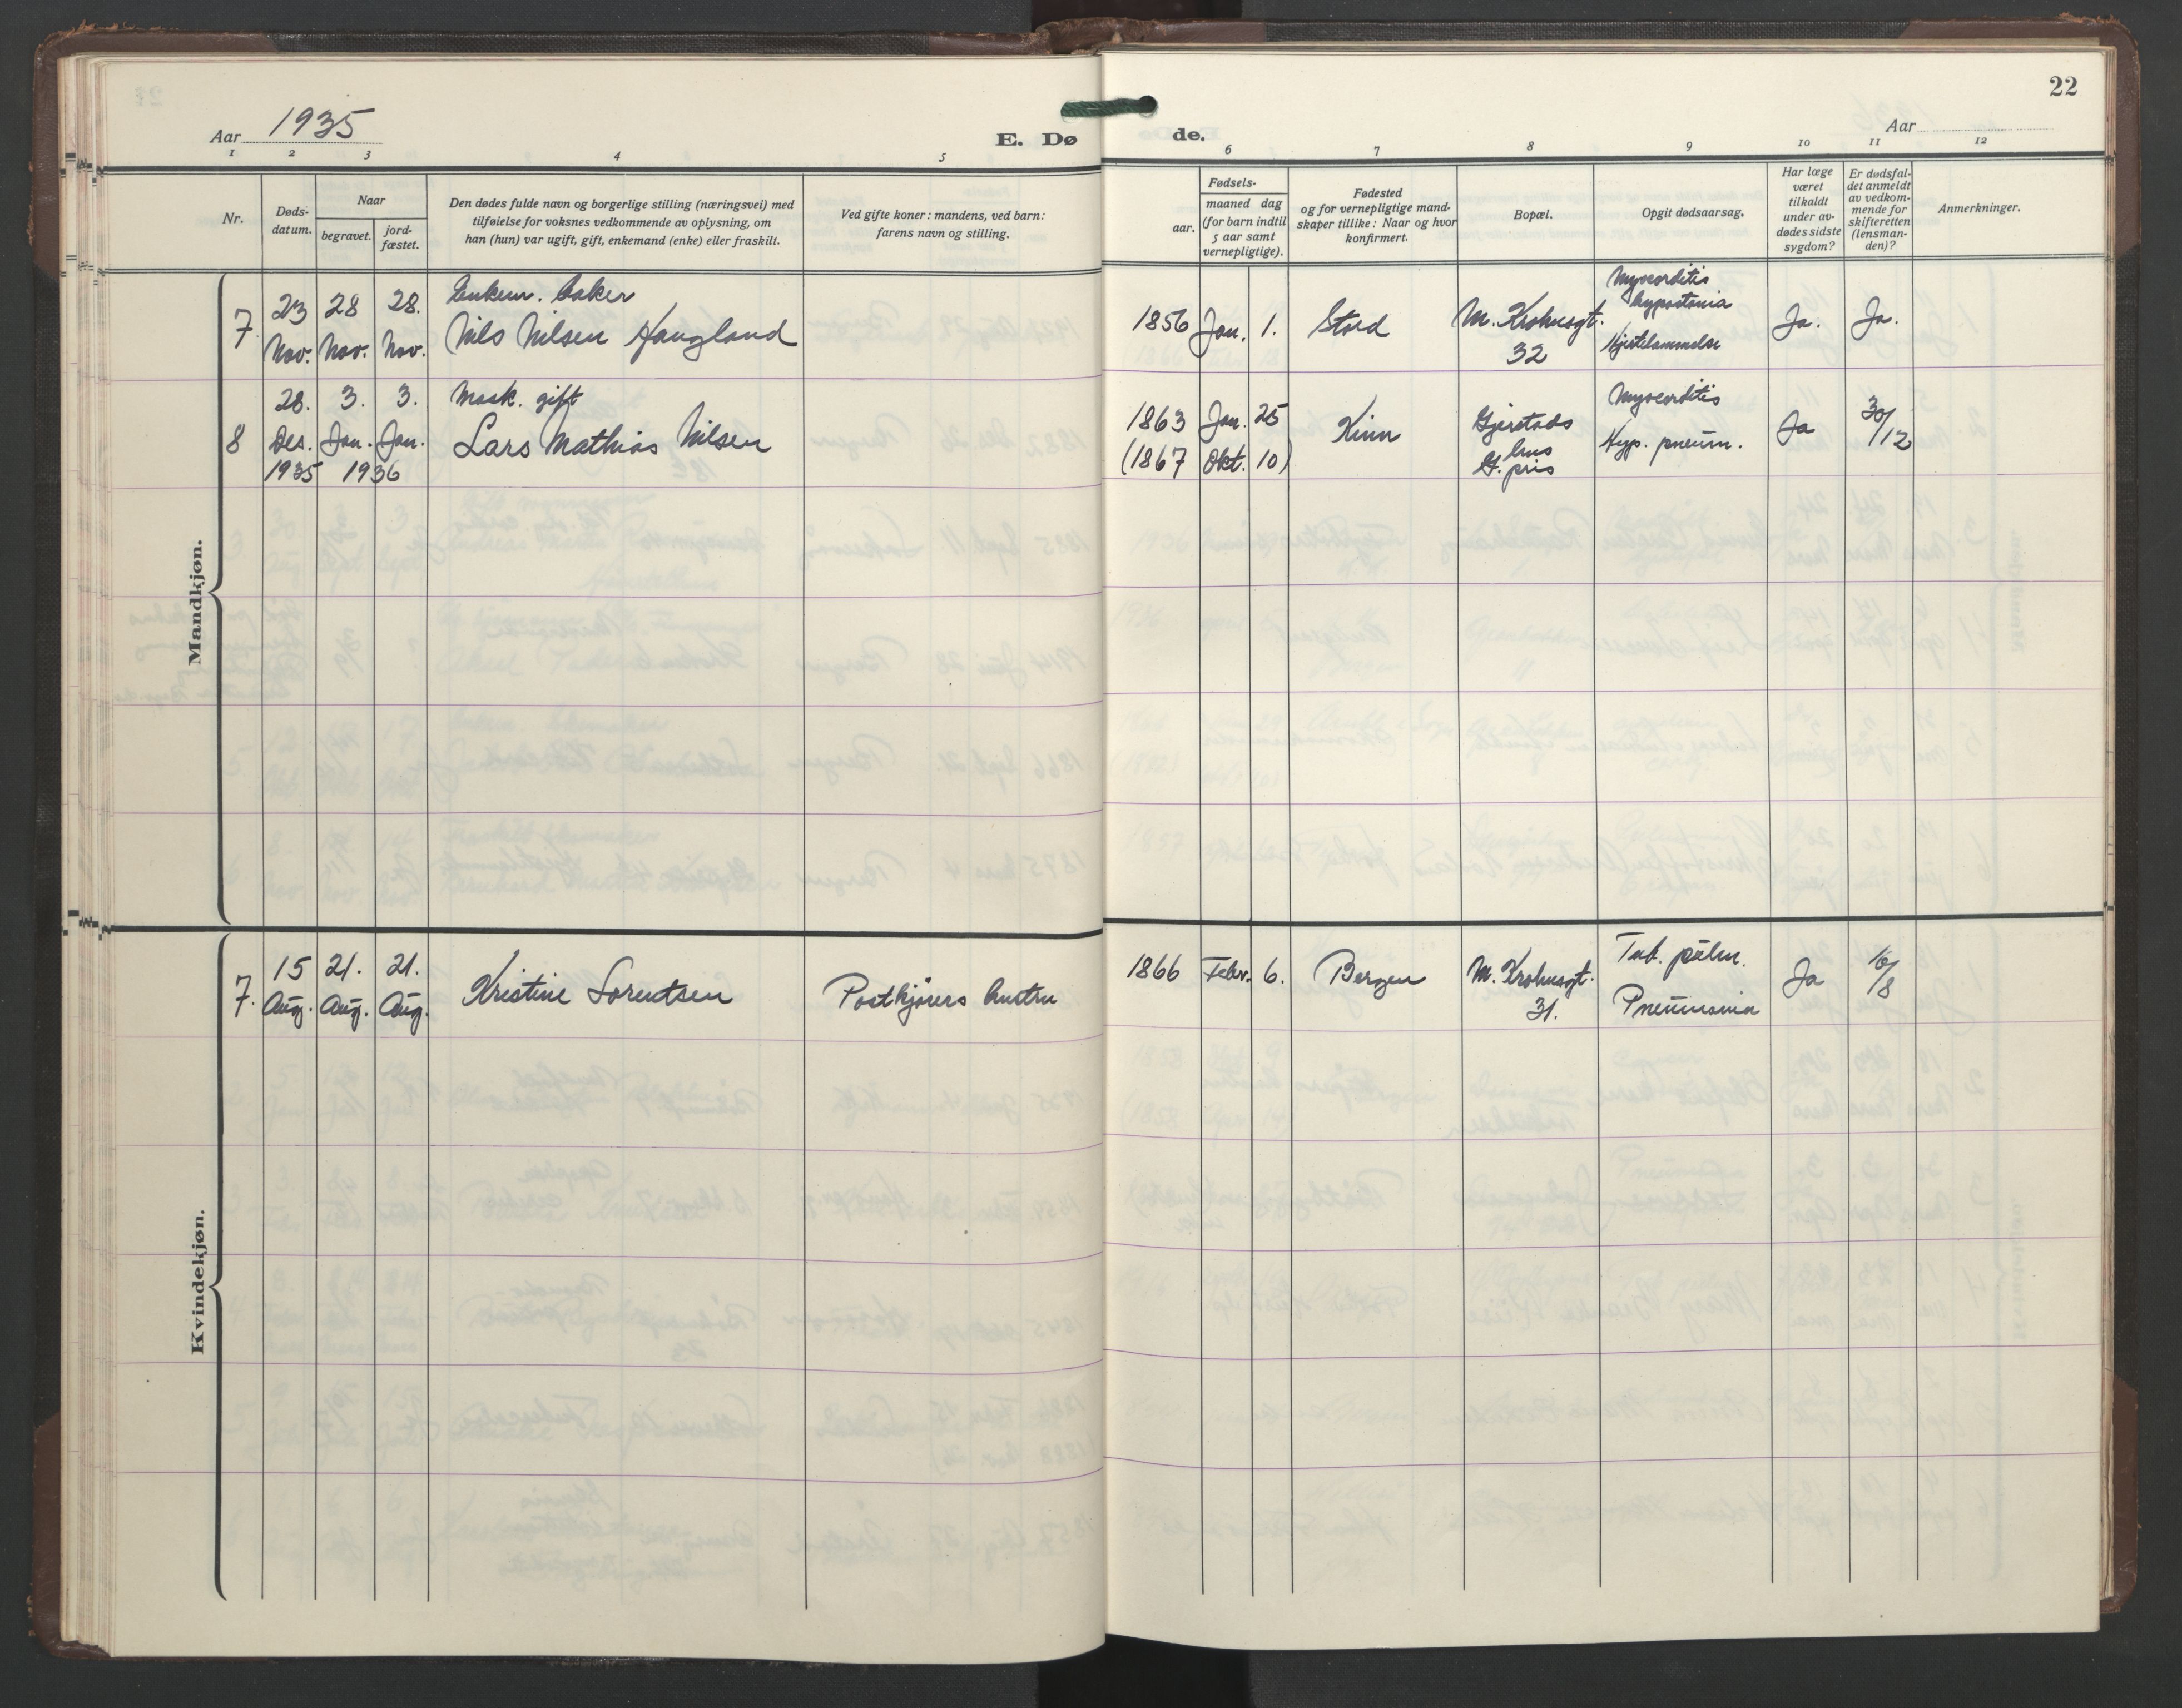 22
Aar 1935
E. Dø
de.
Aar
1 2 3 4 5 6 7 8 9 10 11 12
Nr.
Døds-
datum.
Naar
begravet.
jord-
fæstet.
Den dødes fulde navn og borgerlige stilling (næringsvei) med
tilføielse for voksnes vedkommende av oplysning, om
han (hun) var ugift, gift, enkemand (enke) eller fraskilt.
Ved gifte koner: mandens, ved barn:
farens navn og stilling.
Fødsels-
aar.
maaned dag
(for barn indtil
5 aar samt
vernepligtige).
Fødested
og for vernepligtige mand-
skaper tillike: Naar og hvor
konfirmert.
Bopæl.
Opgit dødsaarsag.
Har læge
været
tilkaldt
under av-
dødes sidste
sygdom?
Er dødsfal-
det anmeldt
av vedkom-
mende for
skifteretten
(lensman-
den)?
Anmerkninger.
Mandkjøn.
7
23
Nov.
28
Nov.
28.
Nov.
Enkem. baker
Nils Nilsen Haugland
1856 Jan. 1.
Stord
M. Krohnsgt.
32
Myocorditis
hypostonia
Hjertelammelse
Ja.
Ja.
8
28.
Des.
1935
3.
Jan.
3.
Jan.
1936
Mask. gift
Lars Mathias Nilsen
1863 Jan. 25
(1867 Okt. 10)
Kinn
Gjerstads
hus
G. pris
Myocorditis
Hyp. pneum.
Ja
30/12
Kvindekjøn.
7.
15
Aug.
21.
Aug.
21.
Aug.
Kristine Lorentsen
Postkjørers hustru
1866 Febr. 6.
Bergen
M. Krohnsgt.
31.
Tub. pulm.
Pneumonia
Ja
16/8